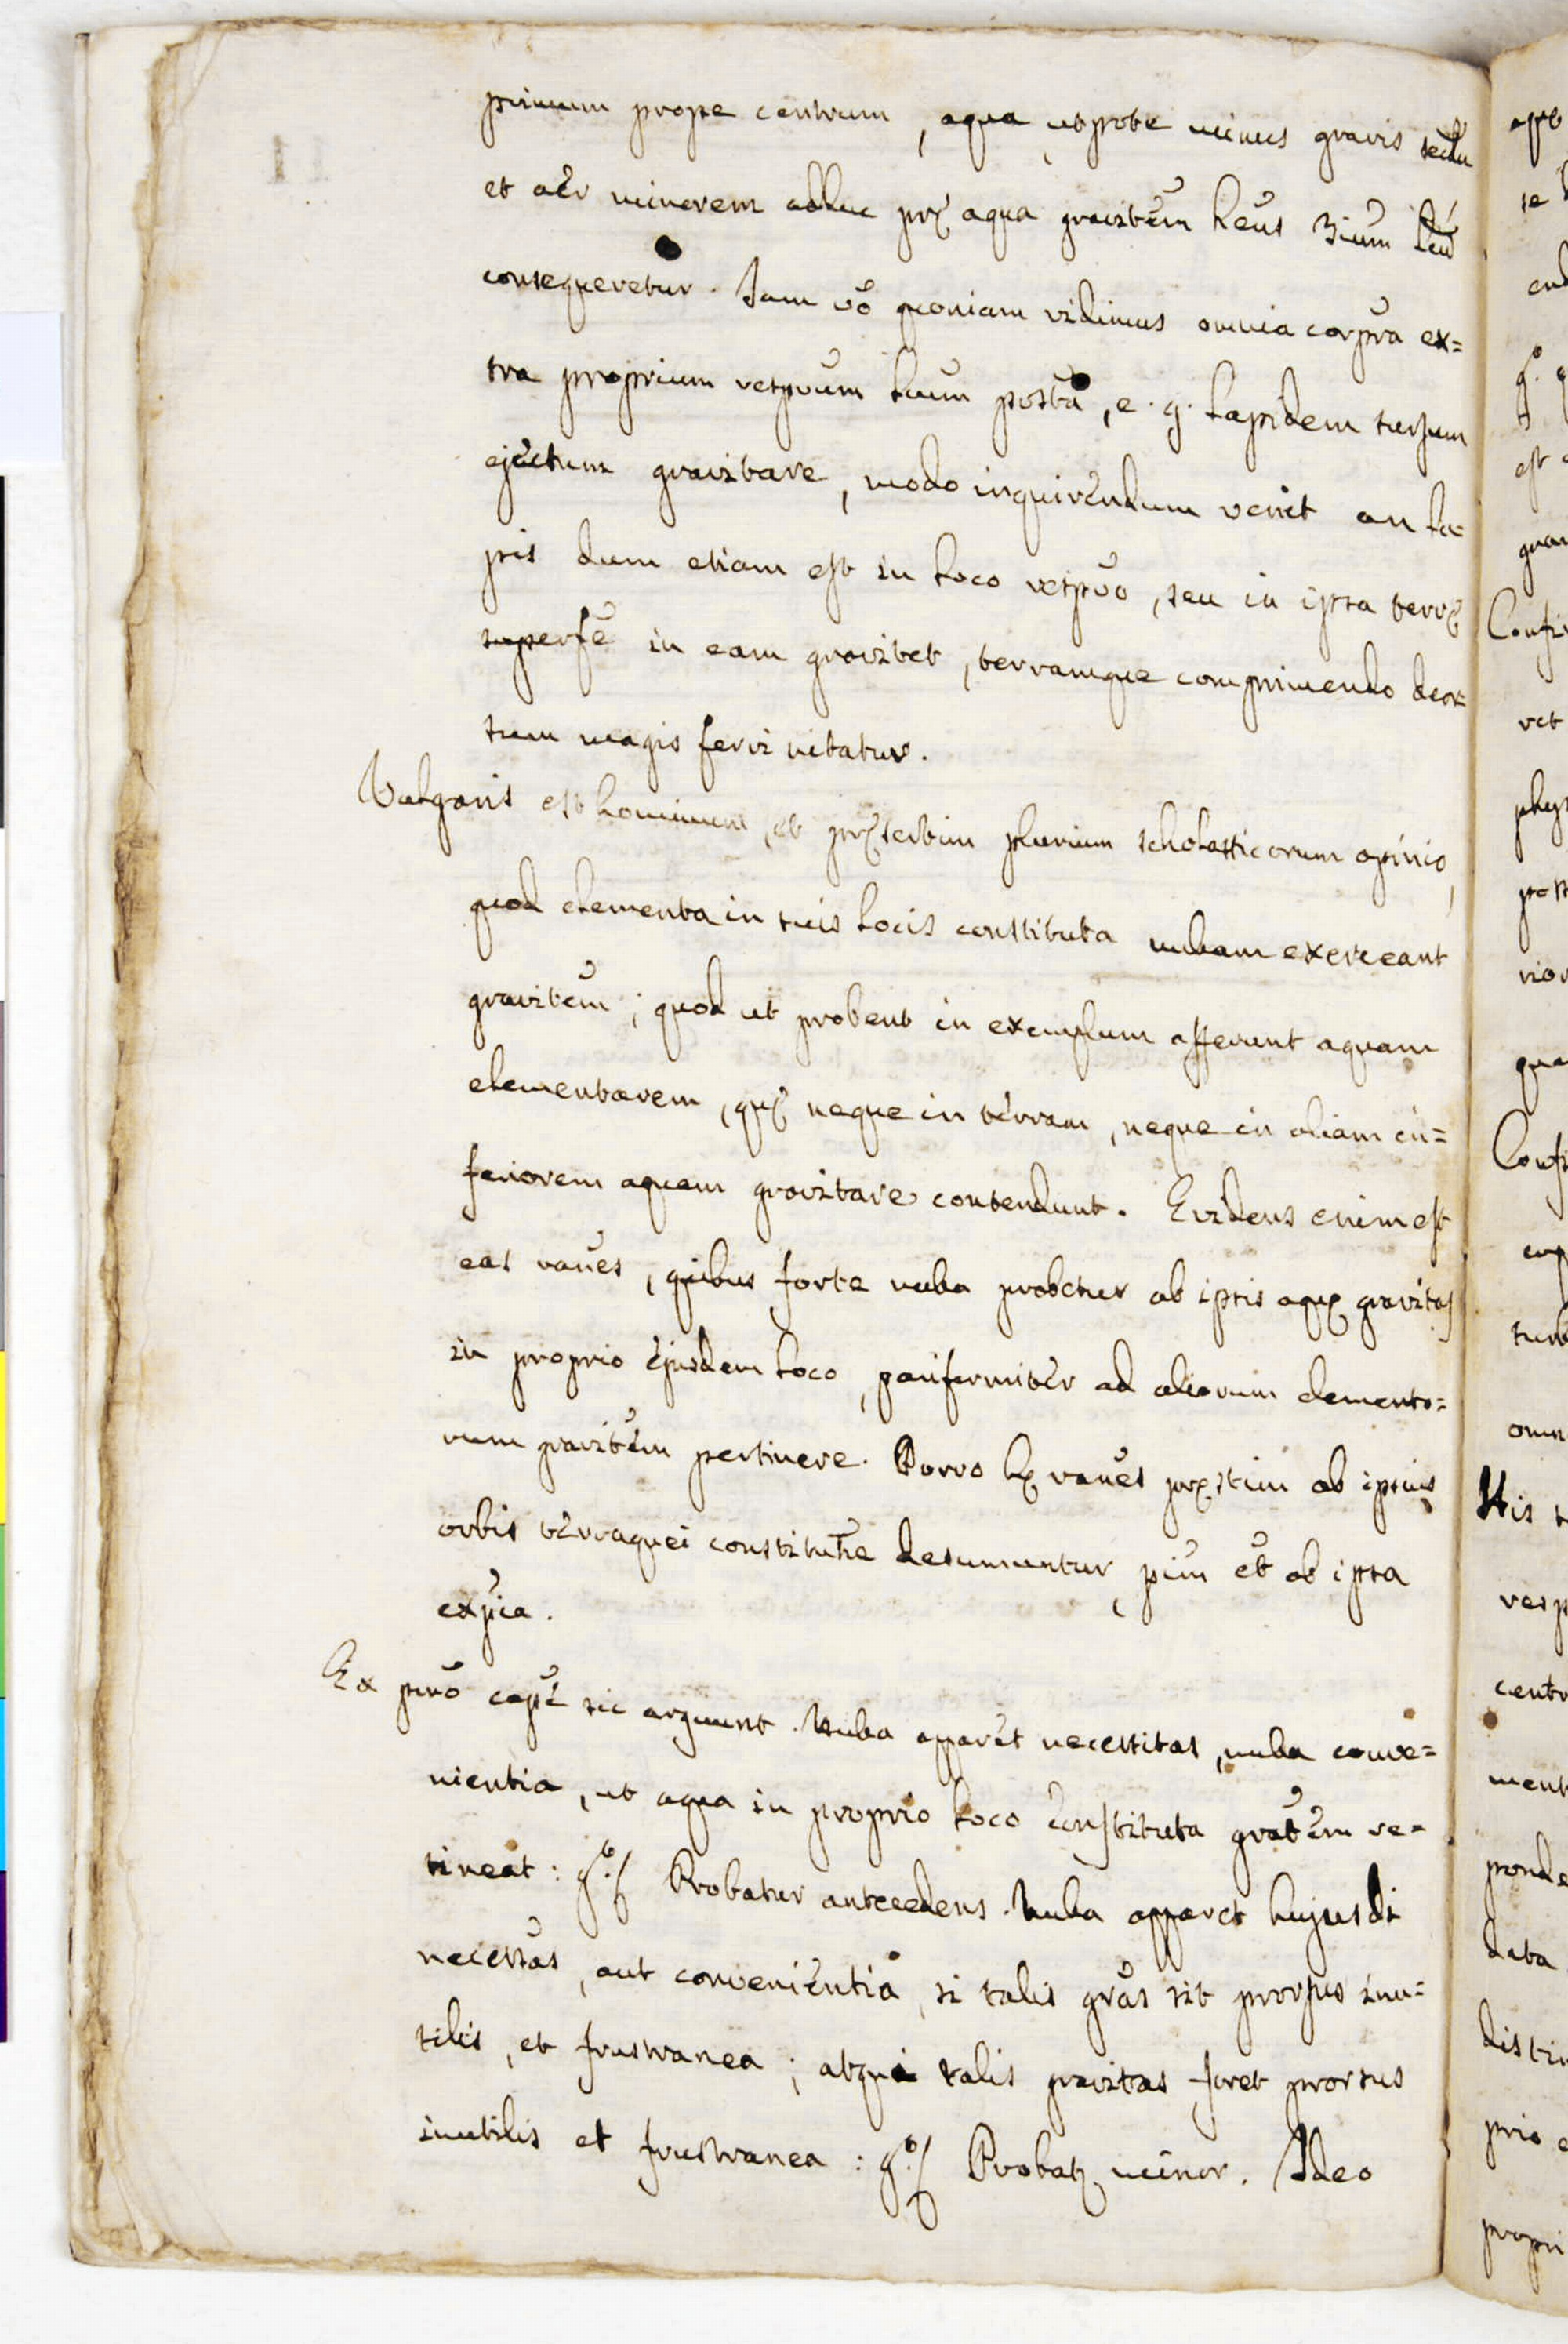 primum prope centrum, aqua utpote minus gravis secdu
et aër minorem adhuc prę aqua gravitem hens 3ium lcu
consequeretur. Jam vo quoniam vidimus omnia corpora ex=
tra proprium respvum lcum posita, e. g. lapidem sursum
ejectum gravitare, modo inquirendum venit an la=
pis dum etiam est in loco respvo, seu in ipsa terrę
superfe in eam gravitet, terramque comprimendo deor=
sum magis ferri nitatur.
Vulgaris est hominum, et pręsertim plurium scholasticorum opinio,
quod elementa in suis locis constituta nullam exerceant
gravitem; quod ut probent in exemplum afferunt aquam
elementarem, quę neque in terram, neque in aliam in=
feriorem aquam gravitare contendunt. Evidens enim est
eas raues, quibus forte nulla probetur ab ipsis aquę gravitas
in proprio ejusdem loco, pariformiter ad aliorum elemento=
rum gravitem pertinere. Porro hę raues pręstim ab ipsius
orbis terraquei constitutne desumuntur, pim et ab ipsa
expia.
Ex pimo cape sic arguunt. Nulla apparet necessitas, nulla conve=
nientia, ut aqua in proprio loco constituta gratem re=
tineat: go// Probatur antecedens. Nulla apparet hujusdi
necessas, aut convenientia, si talis gras sit prorsus inu=
tilis, et frustranea; atqui talis gravitas foret prorsus
inutilis et frustranea: go// Probatę minor. Ideo